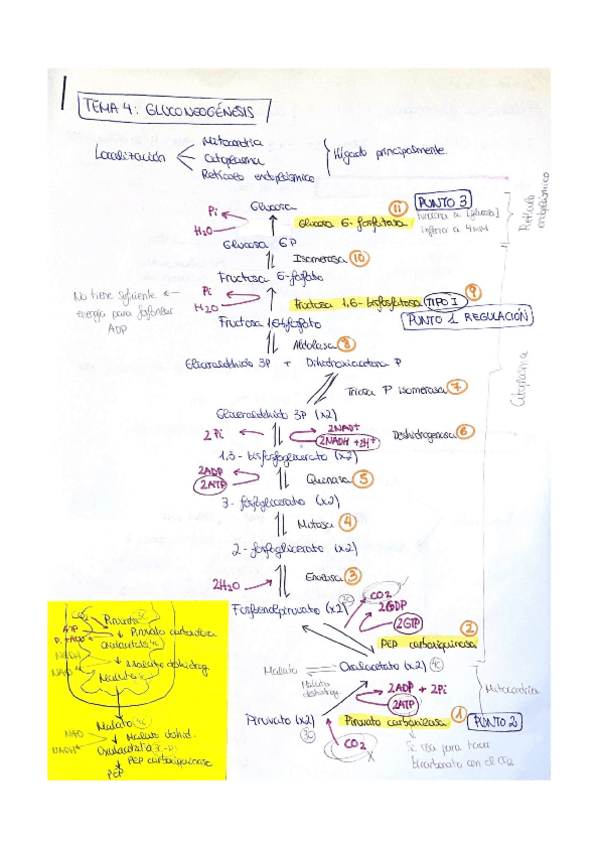 TEMA 4: GLUCONEOGÉNESIS
Localización
Mitocondria
Citoplasma
Retículo endoplásmico
Hígado principalmente.
Glucosa
Pi
H2O
Glucosa 6-fosfatasa
11
PUNTO 3
funciona a [glucosa]
inferior a 4mM
Retículo
endoplásmico
Glucosa 6P
Isomerasa 10
Fructosa 6-fosfato
No tiene suficiente
energía para fosforilar
ADP
Pi
H2O
Fructosa 1,6-bisfosfatasa TIPO I
9
PUNTO 1 REGULACIÓN
Fructosa 1,6bifosfato
Aldolasa 8
Gliceraldehído 3P + Dihidroxiacetona P
Citoplasma
Triosa P isomerasa 7
Gliceraldehído 3P (x2)
2Pi
2NAD+
2NADH + 2H+
Deshidrogenasa 6
1,3-bisfosfoglicerato (x2)
2ADP
2ATP
Quinasa 5
3-fosfoglicerato (x2)
Mutasa 4
2-fosfoglicerato (x2)
2H2O
Enolasa 3
Fosfoenolpiruvato (x2) 3C
CO2
2GDP
2GTP
2
PEP carboxiquinasa
Malato
Malato
deshidrog.
Oxalacetato (x2) 4C
2ADP + 2Pi
2ATP
Mitocondria
Piruvato (x2)
3C
Piruvato carboxilasa 1
PUNTO 2
CO2
Se usa para hacer
bicarbonato con el CO2
CO2
Piruvato 3C
ATP
Piruvato carboxilasa
Oxalacetato 4C
NADH
Malato deshidrog.
NAD
Malato
Malato 4C
NAD
Malato deshid.
NADH
Oxalacetato
PEP carboxiquinasa
PEP